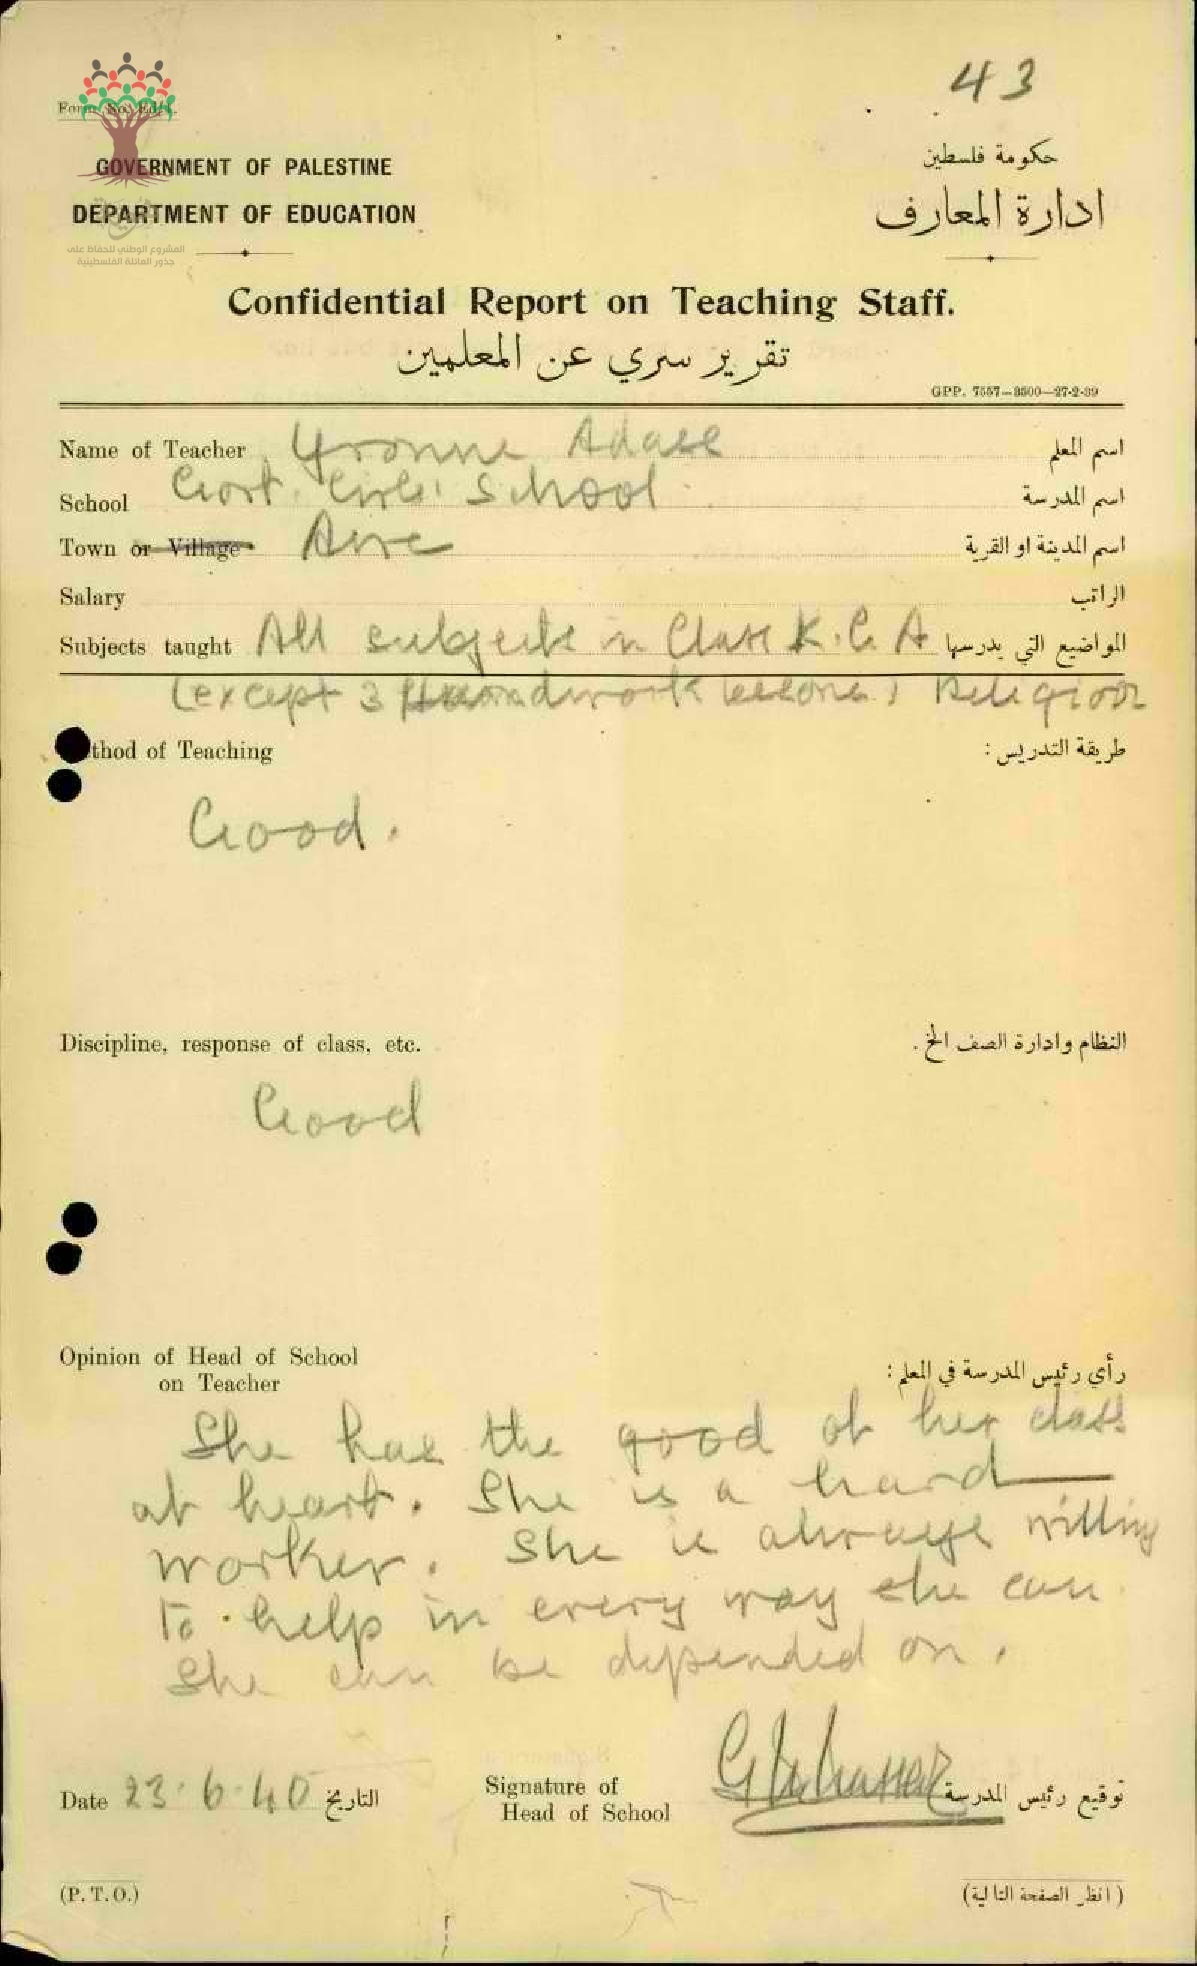 43
Form No. Ed/4.
GOVERNMENT OF PALESTINE
DEPARTMENT OF EDUCATION
حكومة فلسطين
ادارة المعارف
المشروع الوطني للحفاظ على
جذور العائلة الفلسطينية
Confidential Report on Teaching Staff.
تقرير سري عن المعلمين
GPP. 7557—3500—27-2-39
Name of Teacher Yvonne اسم المعلم
School Govt. Girls' School اسم المدرسة
Town or Village Acre اسم المدينة او القرية
Salary الراتب
Subjects taught All subjects in Class K.G. A المواضيع التي يدرسها
(except 3 Handwork lessons) Religion
thod of Teaching طريقة التدريس :
Good.
Discipline, response of class, etc. النظام وادارة الصف الخ .
Good
Opinion of Head of School رأي رئيس المدرسة في المعلم :
on Teacher
She has the good of her class
at heart. She is a hard
worker. She is always willing
to help in every way she can
She can be depended on.
Date 23.6.40 التاريخ Signature of توقيع رئيس المدرسة
Head of School
(P.T.O.) (انظر الصفحة التالية)